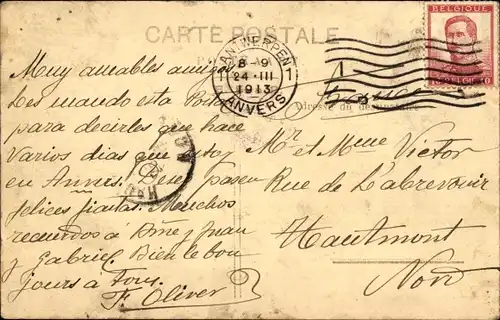 CARTE POSTALE
BELGIQUE
ANTWERPEN
8-9
24 III
1913
ANVERS
1 1
Muy amables amigos
Les mando esta
para decirles que hace
varios dias que estoy
en Deseo pasen
felices fiestas. Muchos
recuerdos a y Juan
y Gabriel Bien le bon
jours a Tous.
F. Oliver
Adresse du destinataire
Mr et Mme Victor
Rue de L'abreuvoir
Hautmont
Nord